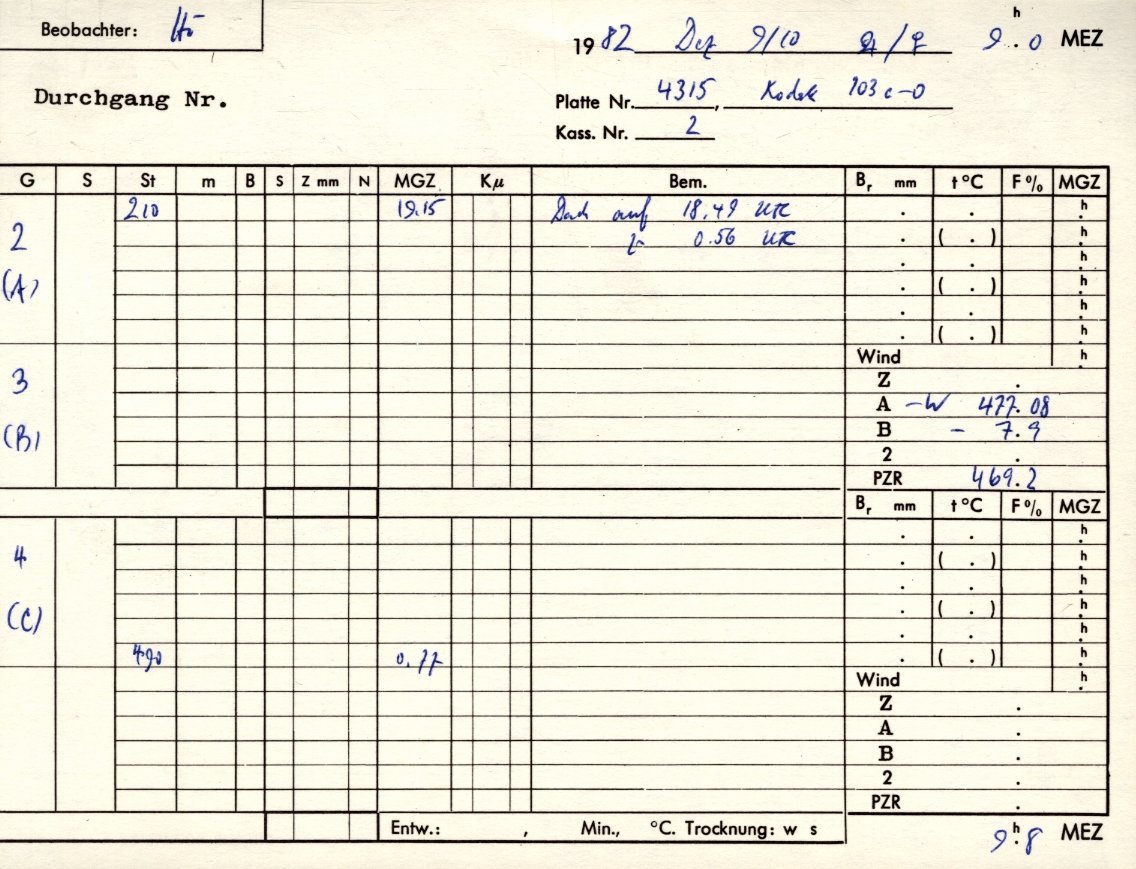 Beobachter: Hö
19 82 Dez 9/10 ♃/♀ 9h.0 MEZ
Durchgang Nr.
Platte Nr. 4315, Kodak 103 a-0
Kass. Nr. 2
G S St m B S Z mm N MGZ Kμ Bem. Br mm t °C F % MGZ
210 19.15 Dach auf 18.49 UTC . . h.
2 zu 0.56 UTC . ( . ) h.
. . h.
(A) . ( . ) h.
. . h.
. ( . ) h.
Wind h.
3 Z .
A -W 477.08
(B) B - 7.9
2 .
PZR 469.2
Br mm t °C F % MGZ
. . h.
4 . ( . ) h.
. . h.
(C) . ( . ) h.
. . h.
490 0.77 . ( . ) h.
Wind h.
Z .
A .
B .
2 .
PZR .
Entw.: , Min., °C. Trocknung: w s
9h.8 MEZ